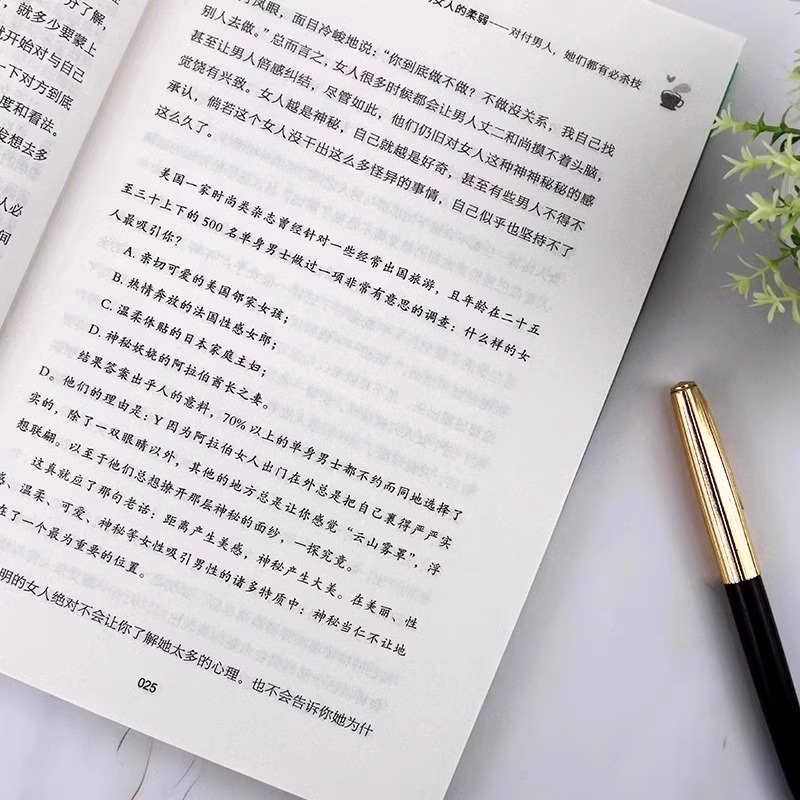 分了解，
，就多少要蒙上
开始对与自己
一下对方到底
度和看法。
发想去多
人必
间
女人的柔弱——对付男人，她们都有必杀技
凤眼，面目冷峻地说：“你到底做不做？不做没关系，我自己找
别人去做。”总而言之，女人很多时候都会让男人丈二和尚摸不着头脑，
甚至让男人倍感纠结，尽管如此，他们仍旧对女人这种神神秘秘的感
觉饶有兴致。女人越是神秘，自己就越是好奇，甚至有些男人不得不
承认，倘若这个女人没干出这么多怪异的事情，自己似乎也坚持不了
这么久了。
美国一家时尚类杂志曾经针对一些经常出国旅游，且年龄在二十五
至三十上下的500名单身男士做过一项非常有意思的调查：什么样的女
人最吸引你？
A. 亲切可爱的美国邻家女孩；
B. 热情奔放的法国性感女郎；
C. 温柔体贴的日本家庭主妇；
D. 神秘妖娆的阿拉伯酋长之妻。
结果答案出乎人的意料，70%以上的单身男士都不约而同地选择了
D。他们的理由是：Y因为阿拉伯女人出门在外总是把自己裹得严严实
实的，除了一双眼睛以外，其他的地方总是让你感觉“云山雾罩”，浮
想联翩。以至于他们总想撩开那层神秘的面纱，一探究竟。
这真就应了那句老话：距离产生美感，神秘产生大美。在美丽、性
感、温柔、可爱、神秘等女性吸引男性的诸多特质中：神秘当仁不让地
在了一个最为重要的位置。
明的女人绝对不会让你了解她太多的心理。也不会告诉你她为什
025